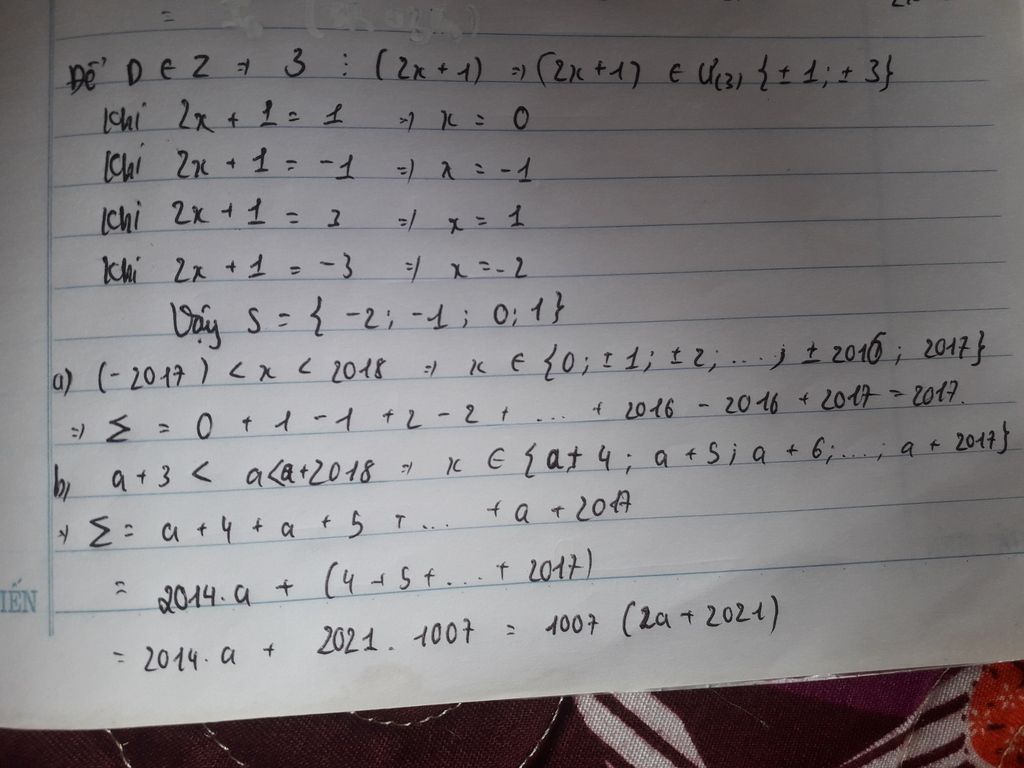 =
Để D ∈ Z => 3 ⋮ (2x + 1) => (2x + 1) ∈ Ư(3) {± 1; ± 3}
Khi 2x + 1 = 1 => x = 0
Khi 2x + 1 = -1 => x = -1
Khi 2x + 1 = 3 => x = 1
Khi 2x + 1 = -3 => x = -2
Vậy S = { -2; -1; 0; 1}
a) (-2017) < x < 2018 => x ∈ {0; ± 1; ± 2; ...; ± 2016; 2017}
=> Σ = 0 + 1 - 1 + 2 - 2 + ... + 2016 - 2016 + 2017 = 2017.
b) a + 3 < a < a + 2018 => x ∈ {a + 4; a + 5; a + 6; ...; a + 2017}
=> Σ = a + 4 + a + 5 + ... + a + 2017
= 2014.a + (4 + 5 + ... + 2017)
= 2014.a + 2021. 1007 = 1007 (2a + 2021)
IẾN